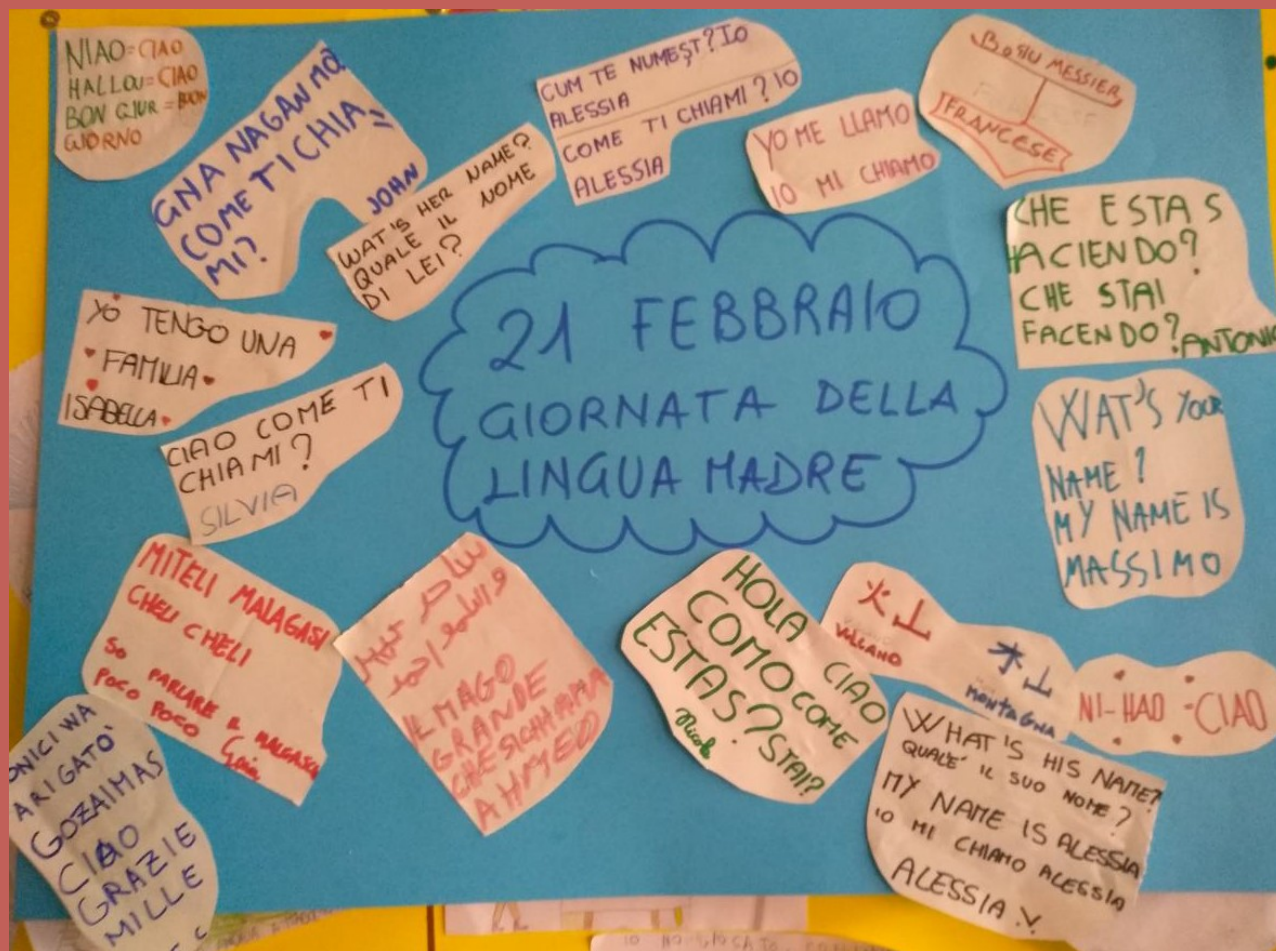 NIAO = CIAO
HALLOU = CIAO
BON GIUR = BUON
GIORNO
GNA NAGAN MO
COME TI CHIA
MI?
JOHN
WAT'S HER NAME?
QUALE IL NOME
DI LEI?
CUM TE NUMEȘT? IO
ALESSIA
COME TI CHIAMI? IO
ALESSIA
YO ME LLAMO
IO MI CHIAMO
MESSIER
FRANCESE
CHE ESTA S
HACIENDO?
CHE STAI
FACENDO? ANTONIO
YO TENGO UNA
FAMILIA
ISABELLA
CIAO COME TI
CHIAMI?
SILVIA
21 FEBBRAIO
GIORNATA DELLA
LINGUA MADRE
WAT'S YOUR
NAME?
MY NAME IS
MASSIMO
MITELI MALAGASI
CHELI CHELI
SO PARLARE IL MALGASCIO
POCO POCO Gaia
ساحر كبير
احمد
IL MAGO
GRANDE
CHE SI CHIAMA
AHMED
HOLA CIAO
COMO COME
ESTAS? STAI?
Nicole
火山
VULCANO
木山
MONTAGNA
NI-HAO - CIAO
ONICI WA
ARIGATÒ
GOZAIMAS
CIAO
GRAZIE
MILLE
WHAT'S HIS NAME?
QUALE' IL SUO NOME?
MY NAME IS ALESSIA
IO MI CHIAMO ALESSIA
ALESSIA V.